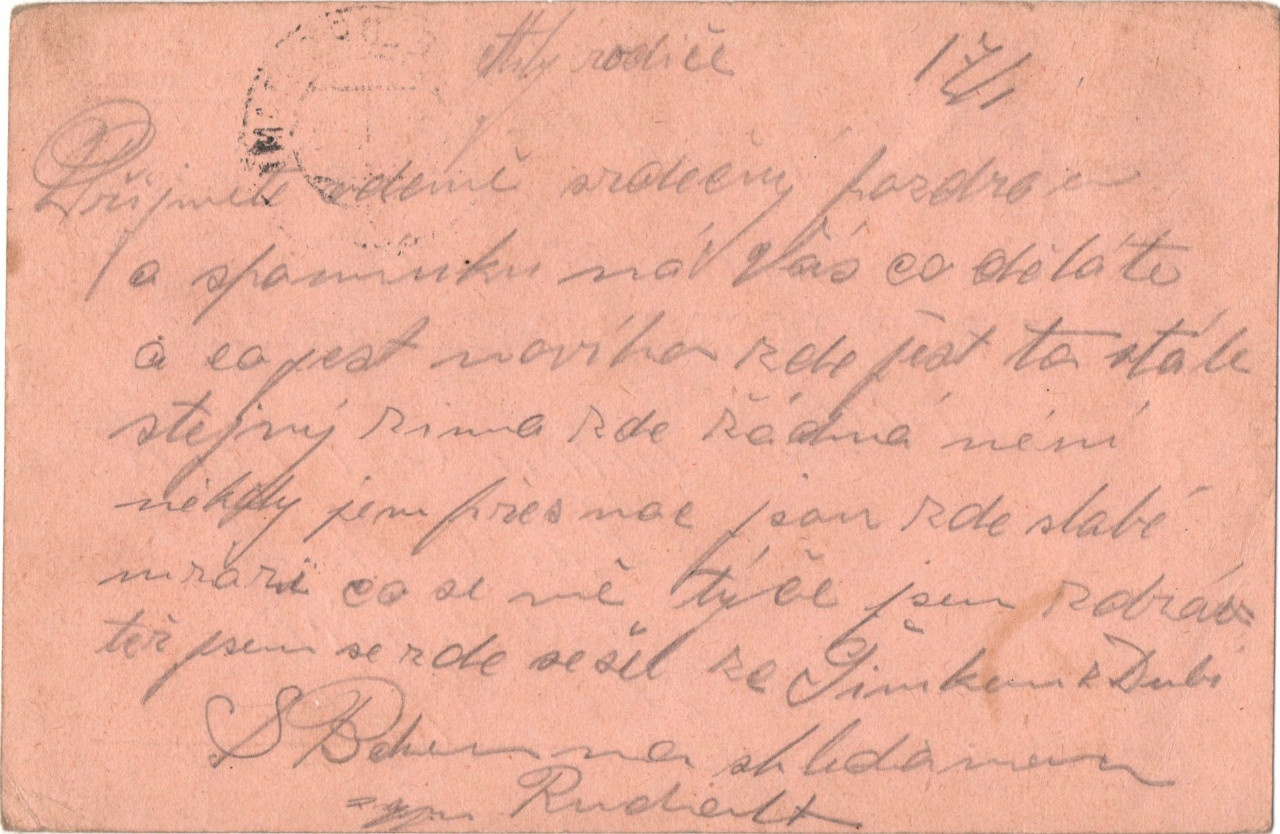 Milý rodiče 17/1
Přijměte odemě srdečný pozdrav
a spomínku na Vás co děláte
a co jest novího zde jest to stále
stejný zima zde žádná neni
někdy jem přes noc jsou zde slabé
mrazi co se mě týče jsem zdráv
též jsem se zde sešel ze Šimkem z Dubi
S Bohem na shledanou
syn Rudolf